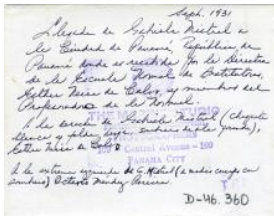 Sept. 1931
Llegada de Gabriela Mistral a
la Ciudad de Panamá, República de
Panamá donde es recibida por la Directora
de la Escuela Normal de Institutoras,
Esther Neira de Calvo, y miembros del
Profesorado de la Normal.
A la derecha de Gabriela Mistral (chaqueta
blanca y sombrero de ala grande),
Esther Neira de Calvo
A la extrema izquierda de G. Mistral (a medio cuerpo con
sombrero) Octavio Méndez Pereira
THE M STUDIO
100 Central Avenue - 100
PANAMA CITY
D-46.360